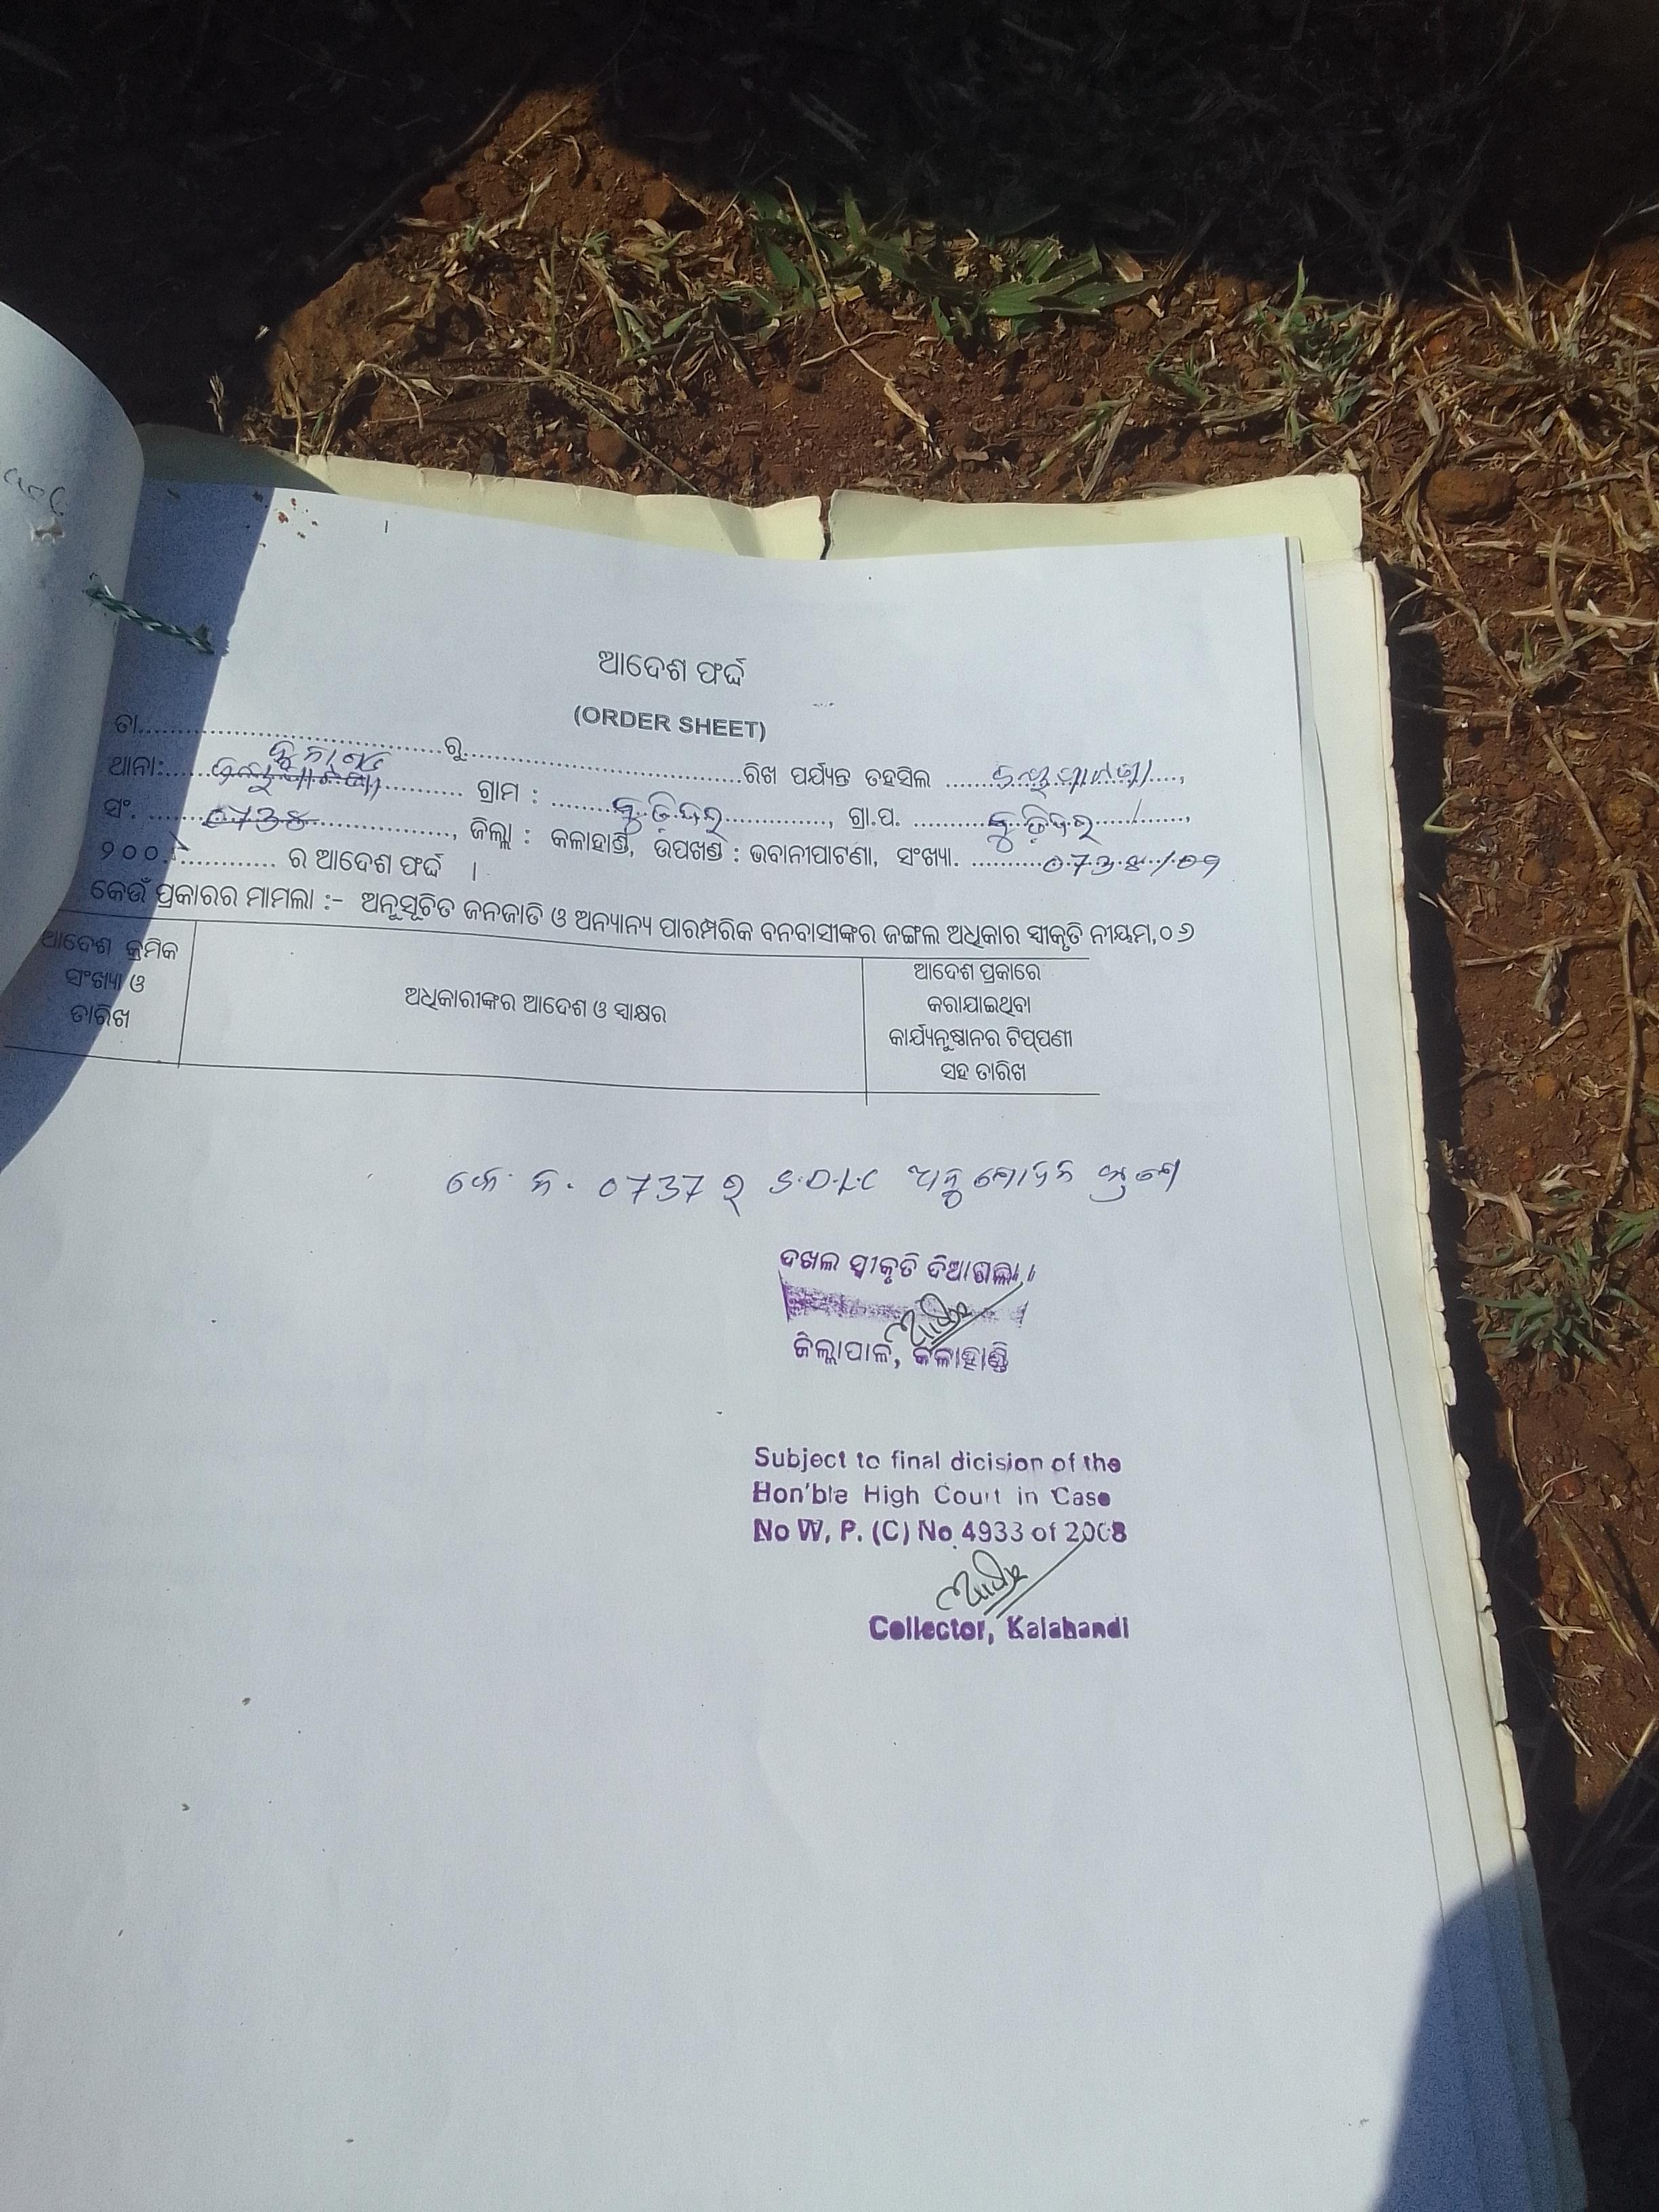 ଆଦେଶ ଫର୍ଦ୍ଦ
(ORDER SHEET)
ତା..............................ରୁ..............................ରିଖ ପର୍ଯ୍ୟନ୍ତ ତହସିଲ
ଥାନା: ଗ୍ରାମ : ଗ୍ରା.ପ.
ସଂ. ୦୨୩୪, ଜିଲ୍ଲା : କଳାହାଣ୍ଡି, ଉପଖଣ୍ଡ : ଭବାନୀପାଟଣା, ସଂଖ୍ୟା.
୨୦୦ ର ଆଦେଶ ଫର୍ଦ୍ଦ ।
କେଉଁ ପ୍ରକାରର ମାମଲା :- ଅନୁସୂଚିତ ଜନଜାତି ଓ ଅନ୍ୟାନ୍ୟ ପାରମ୍ପରିକ ବନବାସୀଙ୍କର ଜଙ୍ଗଲ ଅଧିକାର ସ୍ୱୀକୃତି ନୀୟମ,୦୬
ଆଦେଶ କ୍ରମିକ
ସଂଖ୍ୟା ଓ
ତାରିଖ
ଅଧିକାରୀଙ୍କର ଆଦେଶ ଓ ସ୍ୱାକ୍ଷର
ଆଦେଶ ପ୍ରକାରେ
କରାଯାଇଥିବା
କାର୍ଯ୍ୟନୁଷ୍ଠାନର ଟିପ୍ପଣୀ
ସହ ତାରିଖ
0737 ର S.D.L.C ଅନୁମୋଦନ କ୍ରମେ
ଦଖଲ ସ୍ୱୀକୃତି ଦିଆଗଲା।
ଜିଲ୍ଲାପାଳ, କଳାହାଣ୍ଡି
Subject to final dicision of the
Hon'ble High Court in Case
No W. P. (C) No 4933 of 2008
Collector, Kalahandi